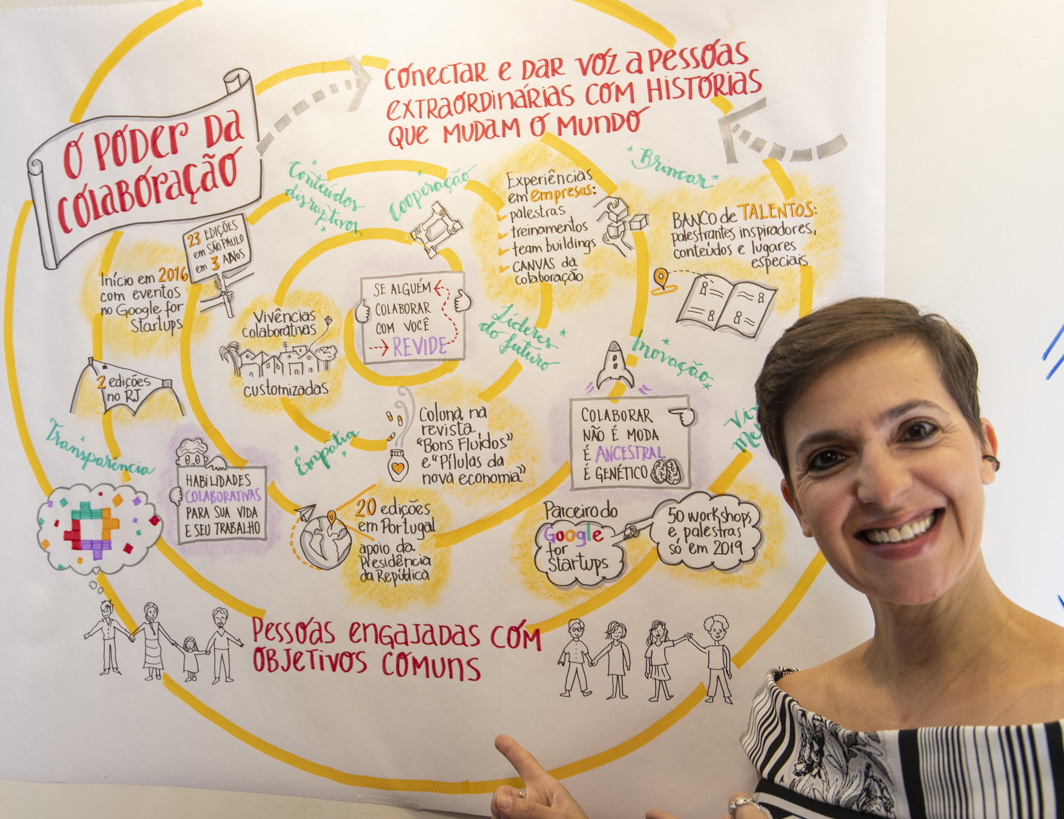 O PODER DA
COLABORAÇÃO
CONECTAR E DAR VOZ A PESSOAS
EXTRAORDINÁRIAS COM HISTÓRIAS
QUE MUDAM O MUNDO
23 EDIÇÕES
EM SÃO PAULO
EM 3 ANOS
Início em 2016
com eventos
no Google for
Startups
2 edições
no RJ
Conteúdos
disruptivos
Cooperação
Vivências
colaborativas
customizadas
SE ALGUÉM
COLABORAR
COM VOCÊ
REVIDE
Experiências
em empresas:
palestras
treinamentos
team buildings
CANVAS da
colaboração
Brincar
BANCO de TALENTOS:
palestrantes inspiradores,
conteúdos e lugares
especiais
Líderes
do futuro
Inovação
Transparência
HABILIDADES
COLABORATIVAS
PARA SUA VIDA
E SEU TRABALHO
Empatia
Coluna na
revista
"Bons Fluidos"
e "Pílulas da
nova economia"
COLABORAR
NÃO É MODA
É ANCESTRAL
É GENÉTICO
20 edições
em Portugal
apoio da
Presidência
da República
Parceiro do
Google
for
Startups
50 workshops
e palestras
só em 2019
PESSOAS ENGAJADAS COM
OBJETIVOS COMUNS